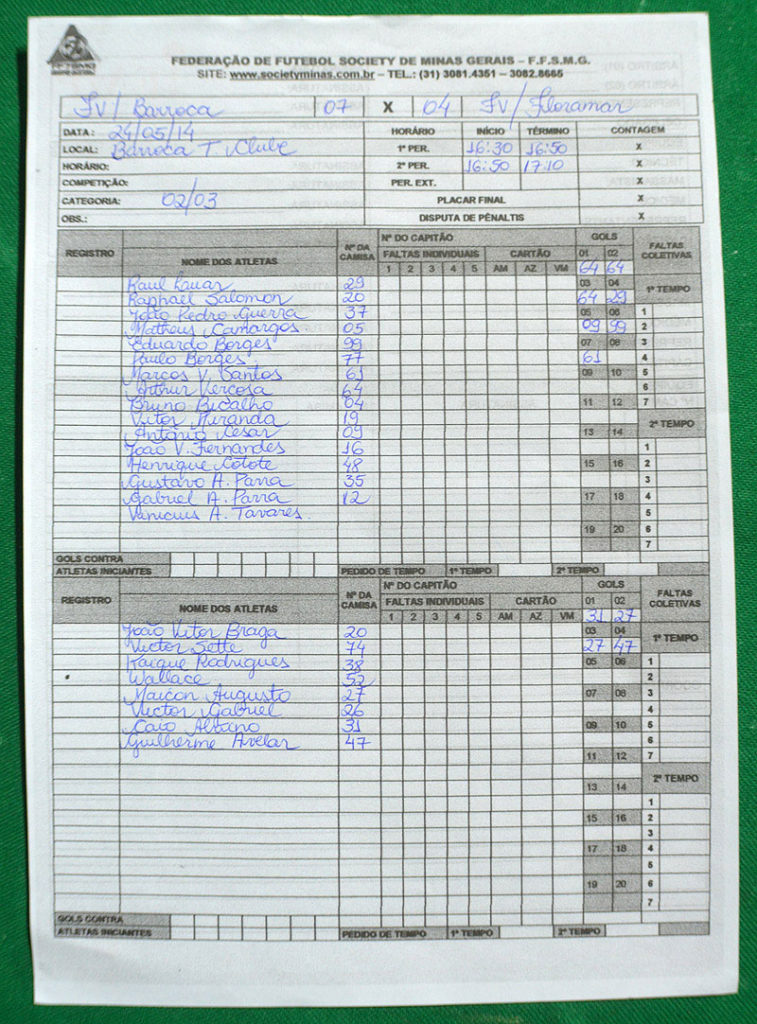 FEDERAÇÃO DE FUTEBOL SOCIETY DE MINAS GERAIS – F.F.S.M.G.
SITE: www.societyminas.com.br – TEL.: (31) 3081.4351 – 3082.8665
SV/ Barroca 07 X 04 SV/ Floramar
DATA: 24/05/14 HORÁRIO INÍCIO TÉRMINO CONTAGEM
LOCAL: Barroca T. Clube 1º PER. 16:30 16:50 X
HORÁRIO: 2º PER. 16:50 17:10 X
COMPETIÇÃO: PER. EXT. X
CATEGORIA: 02/03 PLACAR FINAL X
OBS.: DISPUTA DE PÊNALTIS X
REGISTRO NOME DOS ATLETAS Nº DA CAMISA Nº DO CAPITÃO GOLS FALTAS COLETIVAS
FALTAS INDIVIDUAIS CARTÃO 01 02
1 2 3 4 5 AM AZ VM 64 64
Raul 29 03 04 1º TEMPO
Raphael Salomon 20 64 29
João Pedro Guerra 37 05 06 1
Matheus Camargos 05 09 99 2
Eduardo Borges 99 07 08 3
Paulo Borges 77 61 4
Marcos V. Santos 61 09 10 5
Arthur Verçosa 64 6
Bruno Bicalho 04 11 12 7
Vitor Miranda 19 2º TEMPO
Antônio Cesar 09 13 14
João V. Fernandes 16 1
Henrique Cotote 48 15 16 2
Gustavo A. Parra 35 3
Gabriel A. Parra 12 17 18 4
Vanicius A. Tavares 5
19 20 6
7
GOLS CONTRA
ATLETAS INICIANTES PEDIDO DE TEMPO 1º TEMPO 2º TEMPO
REGISTRO NOME DOS ATLETAS Nº DA CAMISA Nº DO CAPITÃO GOLS FALTAS COLETIVAS
FALTAS INDIVIDUAIS CARTÃO 01 02
1 2 3 4 5 AM AZ VM 31 27
João Vitor Braga 20 03 04 1º TEMPO
Victor Sette 74 27 47
Kaique Rodrigues 38 05 06 1
Wallace 52 2
Maicon Augusto 27 07 08 3
Victor Gabriel 26 4
Caio Albano 31 09 10 5
Guilherme Avelar 47 6
11 12 7
2º TEMPO
13 14
1
15 16 2
3
17 18 4
5
19 20 6
7
GOLS CONTRA
ATLETAS INICIANTES PEDIDO DE TEMPO 1º TEMPO 2º TEMPO